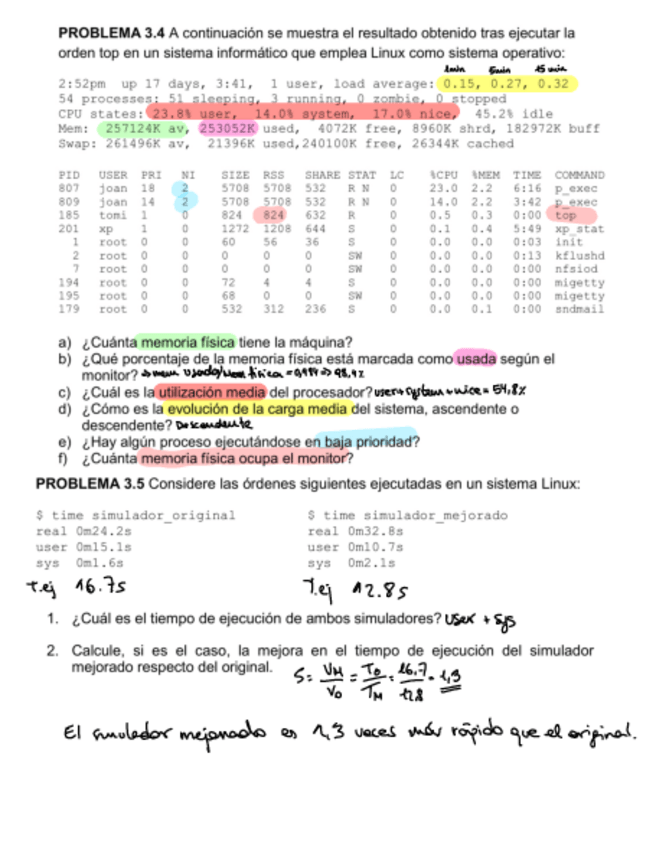 PROBLEMA 3.4 A continuación se muestra el resultado obtenido tras ejecutar la
orden top en un sistema informático que emplea Linux como sistema operativo:
1min 5min 15 min
2:52pm up 17 days, 3:41, 1 user, load average: 0.15, 0.27, 0.32
54 processes: 51 sleeping, 3 running, 0 zombie, 0 stopped
CPU states: 23.8% user, 14.0% system, 17.0% nice, 45.2% idle
Mem: 257124K av, 253052K used, 4072K free, 8960K shrd, 182972K buff
Swap: 261496K av, 21396K used,240100K free, 26344K cached
PID USER PRI NI SIZE RSS SHARE STAT LC %CPU %MEM TIME COMMAND
807 joan 18 2 5708 5708 532 R N 0 23.0 2.2 6:16 p_exec
809 joan 14 2 5708 5708 532 R N 0 14.0 2.2 3:42 p_exec
185 tomi 1 0 824 824 632 R 0 0.5 0.3 0:00 top
201 xp 1 0 1272 1208 644 S 0 0.1 0.4 5:49 xp_stat
1 root 0 0 60 56 36 S 0 0.0 0.0 0:03 init
2 root 0 0 0 0 0 SW 0 0.0 0.0 0:13 kflushd
7 root 0 0 0 0 0 SW 0 0.0 0.0 0:00 nfsiod
194 root 0 0 72 4 4 S 0 0.0 0.0 0:00 migetty
195 root 0 0 68 0 0 SW 0 0.0 0.0 0:00 migetty
179 root 0 0 532 312 236 S 0 0.0 0.1 0:00 sndmail
a) ¿Cuánta memoria física tiene la máquina?
b) ¿Qué porcentaje de la memoria física está marcada como usada según el
monitor? → mem usado/mem física = 0,984 => 98,4%
c) ¿Cuál es la utilización media del procesador? user+system+nice = 54,8%
d) ¿Cómo es la evolución de la carga media del sistema, ascendente o
descendente? Descendente
e) ¿Hay algún proceso ejecutándose en baja prioridad?
f) ¿Cuánta memoria física ocupa el monitor?
PROBLEMA 3.5 Considere las órdenes siguientes ejecutadas en un sistema Linux:
$ time simulador_original $ time simulador_mejorado
real 0m24.2s real 0m32.8s
user 0m15.1s user 0m10.7s
sys 0m1.6s sys 0m2.1s
T.ej 16.7s T.ej 12.8s
1. ¿Cuál es el tiempo de ejecución de ambos simuladores? User + Sys
2. Calcule, si es el caso, la mejora en el tiempo de ejecución del simulador
mejorado respecto del original. S = VM/VO = TO/TM = 16,7/12,8 = 1,3
El simulador mejorado es 1,3 veces más rápido que el original.